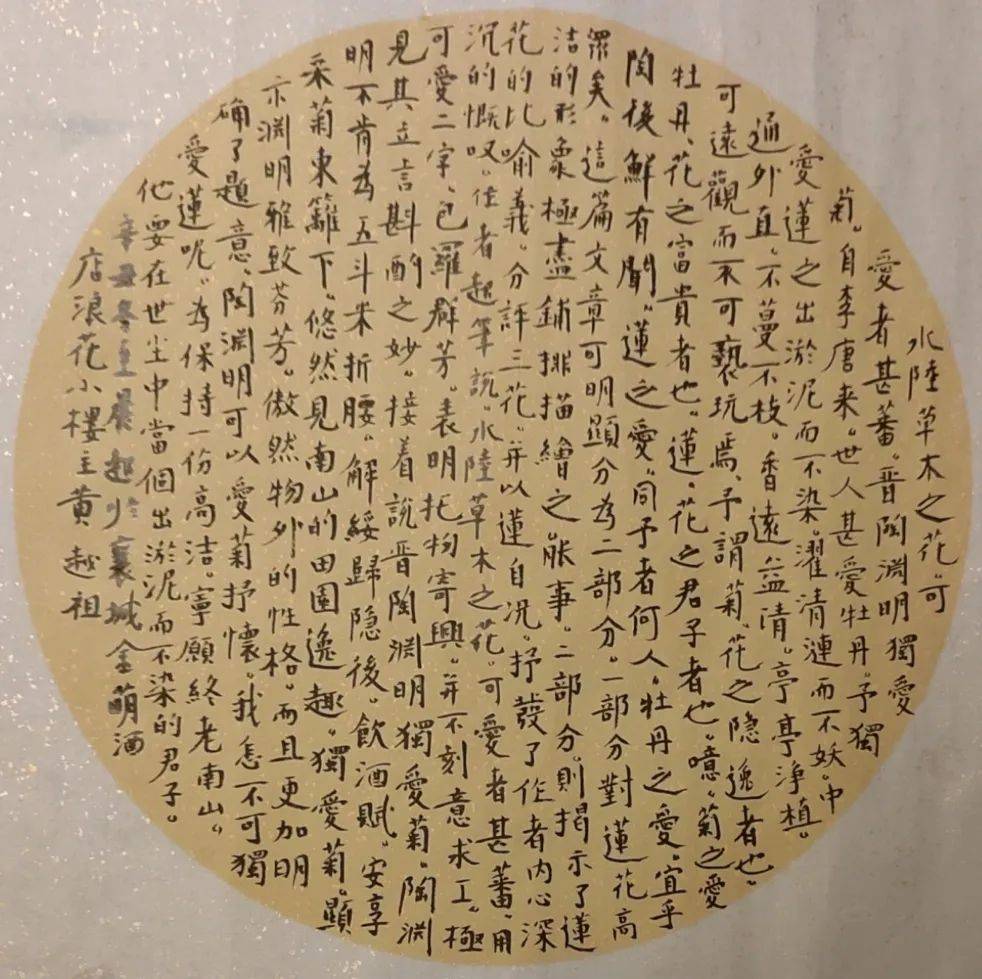 水陸草木之花。可
愛者甚蕃。晋陶淵明獨愛
菊。自李唐来。世人甚愛牡丹。予獨
愛蓮之出淤泥而不染。濯清漣而不妖。中
通外直。不蔓不枝。香遠益清。亭亭净植。
可遠觀而不可褻玩焉。予謂菊。花之隐逸者也。
牡丹。花之富貴者也。蓮。花之君子者也。噫。菊之愛
陶後鮮有聞。蓮之愛。同予者何人。牡丹之愛。宜乎
眾矣。這篇文章可明顯分為二部分。一部分對蓮花高
洁的形象極盡鋪排描繪之能事。二部分。則揭示了蓮
花的比喻義。分評三花。并以蓮自况。抒發了作者内心深
沉的慨叹。作者起筆說。水陸草木之花。可愛者甚蕃。用
可愛二字。包羅群芳。表明托物寄興。并不刻意求工。極
見其立言斟酌之妙。接着說晋陶淵明獨愛菊。陶淵
明不肯為五斗米折腰。解綬歸隐後。飲酒賦。安享
采菊東籬下。悠然見南山的田園逸趣。獨愛菊。顯
示淵明雅致芬芳。傲然物外的性格。而且更加明
确了題意。陶渊明可以愛菊抒懷。我怎不可獨
愛蓮呢。為保持一份高洁。寧願終老南山。
他要在世尘中當個出淤泥而不染的君子。
辛丑冬至晨起於襄城金萌酒
店浪花小樓主黄越祖